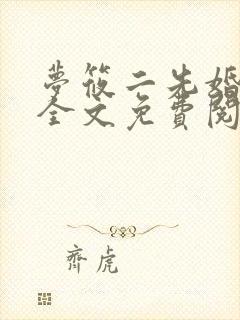 夢筱二先婚
全文免費閱
齊虎